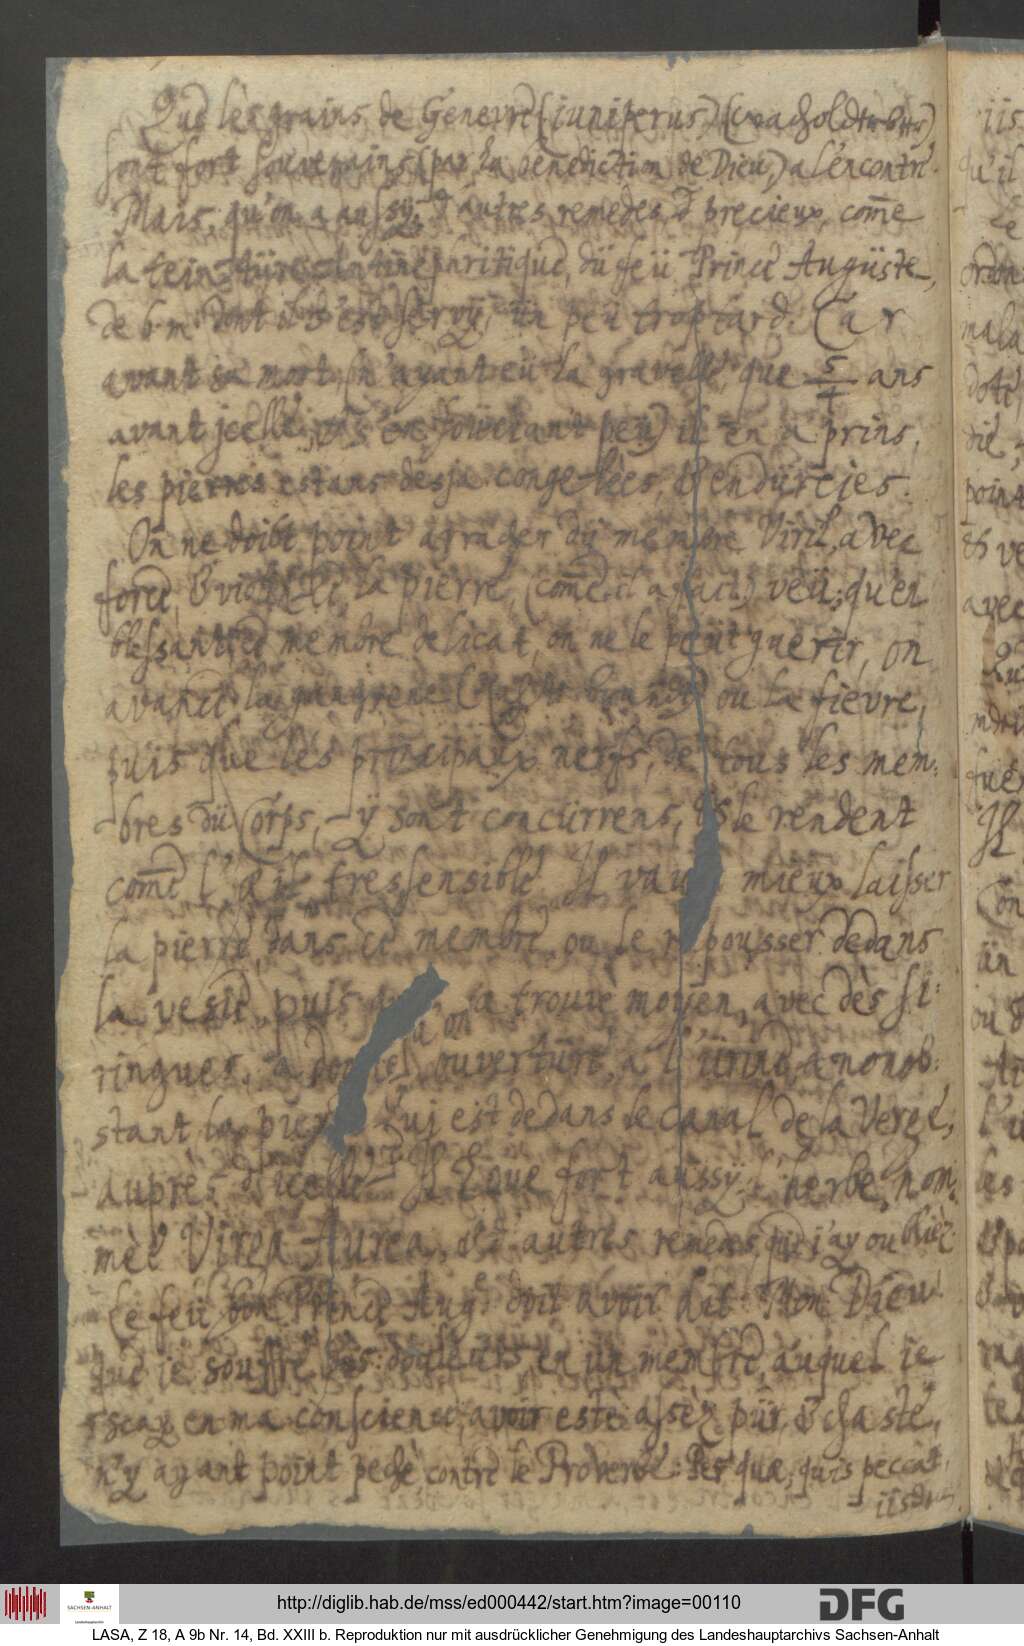 Que les grains de Genevre (juniperus) (wacholdterbehr)
sont fort souverains (par la benediction de Dieu,) a l'encontre.
Mais, qu'on a aussy, d'autres remedes & precieux, com̅e
la teinctüre du feü Prince Augüste,
de b. m. dont il s'est servÿ, ün peü trop tard. Car
avant sa mort, n'ayant eü la gravelle, que 5/4 ans
avant jcelle, peü) il en a prins,
les pierres estans desja congelèes, & endürcies.
On ne doibt point arracher dü membre Viril, avec
force, & violence, la pierre, (com̅e il a fait,) veü, qu'en
blessant ce membre delicat, on ne le peüt guerir, on
avance la gangrene ou la fievre,
puis que les principaux nerfs, de tous les mem-
bres dü Corps, y sont concürrens, & le rendent
com̅e l'œil fressensible. Il vau mieux laisser
la pierre, dans ce membre, ou le repousser dedans
la vesie, puis qu' on a trouvè moyen, avec dès si-
ringues, a donner ouvertüre, a l'ürine, a nonob-
stant la pierre Qui est dedans le canal de la Verge,
auprès d'icelle. Il Loüe fort aüssÿ, l'herbe, nom-
mèe Virga Aurea, & d'autres remedes, que j'ay oubliéz.
Le feü bon Prince Aug: doit avoir dit: Mon Dieu!
que je souffre des douleurs, en un membre, auquel je
scay en ma conscience, avoir estè assèz pür, & chaste,
n'y ayant point pechè contre le Proverbe: Per quæ, quis peccat,
iisdem
http://diglib.hab.de/mss/ed000442/start.htm?image=00110
DFG
SACHSEN-ANHALT
LASA, Z 18, A 9b Nr. 14, Bd. XXIII b. Reproduktion nur mit ausdrücklicher Genehmigung des Landeshauptarchivs Sachsen-Anhalt